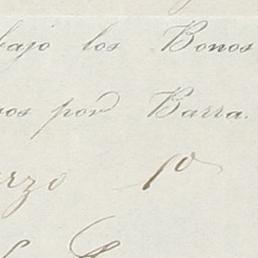 bajo los Bonos
nos por Barra.
arzo 1º